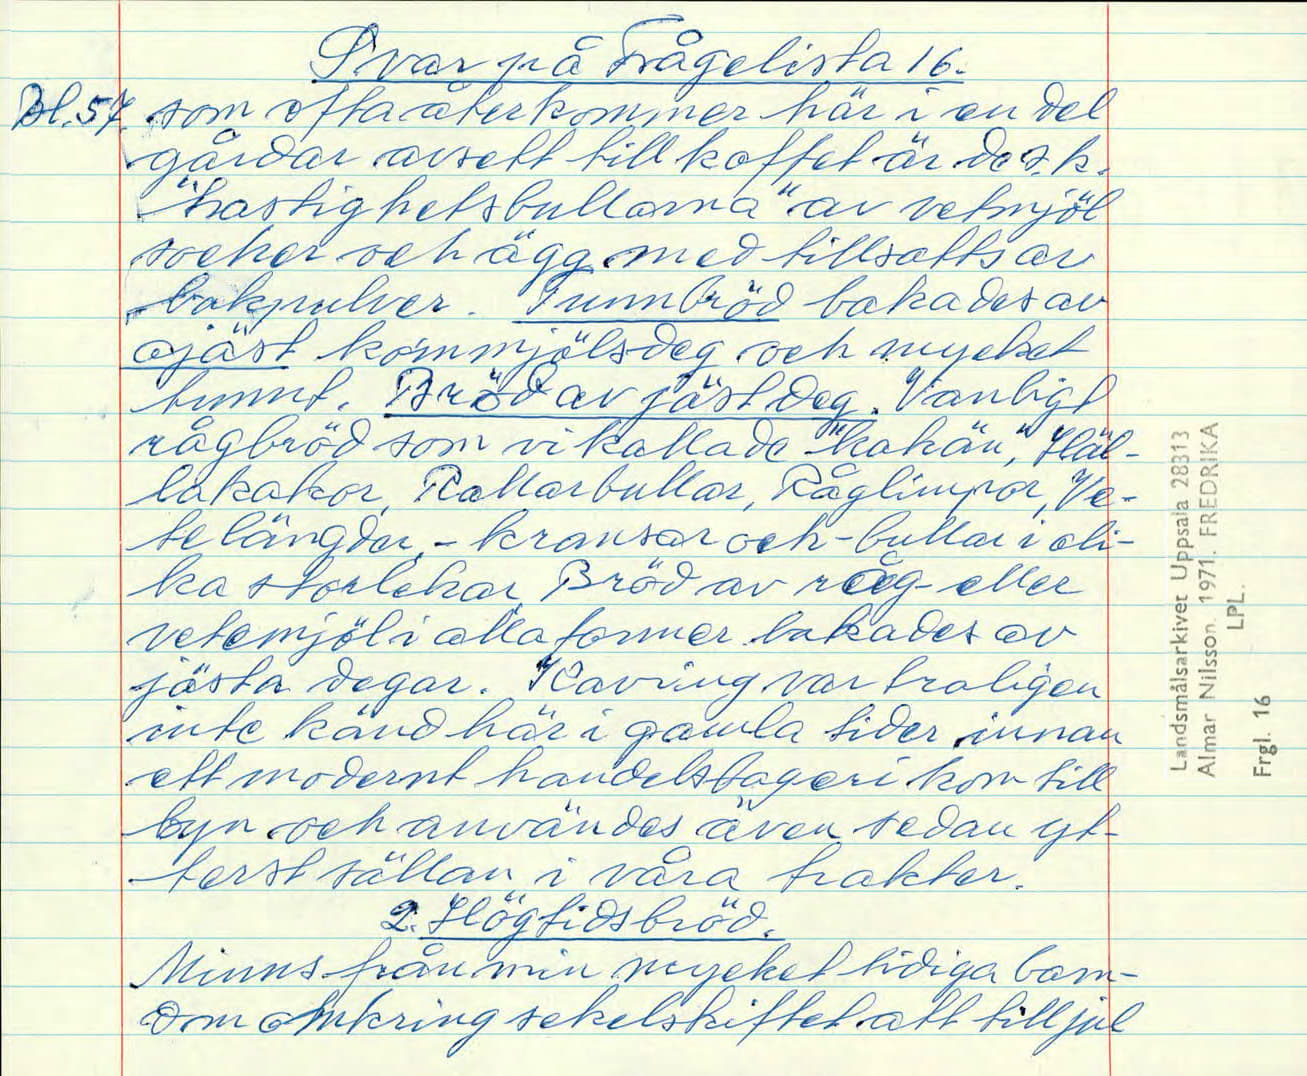 Svar på Frågelista 16.
Bl. 57. som ofta återkommer här i en del
gårdar avsett till kaffet är de s.k.
"hastighetsbullarna" av vetmjöl
socker och ägg med tillsatts av
bakpulver. Tunnbröd bakades av
ojäst kornmjölsdeg och mycket
tunnt. Bröd av jäst deg. Vanligt
rågbröd som vi kallade "kakän", Häl-
lakakor, Rallarbullar, Råglimpor, Ve-
telängder, - kransar och - bullar i oli-
ka storlekar. Bröd av råg- eller
vetemjöl i alla former bakades av
jästa degar. Kavring var troligen
inte känd här i gamla tider innan
ett modernt handelsbageri kom till
byn och användes även sedan yt-
terst sällan i våra trakter.
2. Högtidsbröd.
Minns från min mycket tidiga barn-
dom omkring sekelskiftet att till jul
Landsmålsarkivet Uppsala 28313
Almar Nilsson. 1971. FREDRIKA
LPL.
Frgl. 16